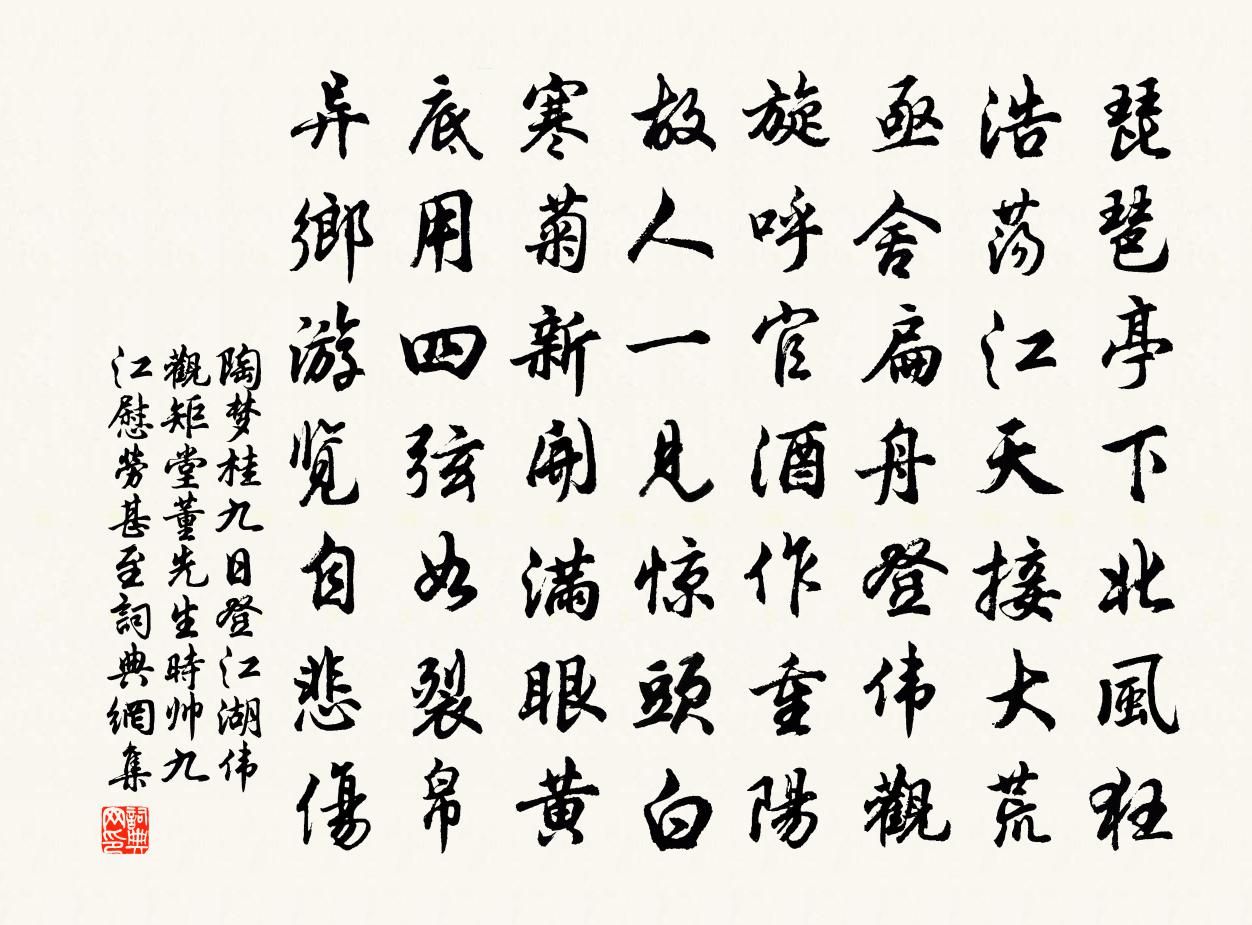 琵琶亭下北風狂
浩荡江天接大荒
亟舍扁舟登伟觀
旋呼官酒作重陽
故人一見惊頭白
寒菊新開满眼黄
底用四弦如裂帛
异鄉游览自悲傷
陶梦桂九日登江湖伟
觀矩堂董先生時帅九
江慰勞甚至詞典網集
詞典
网印